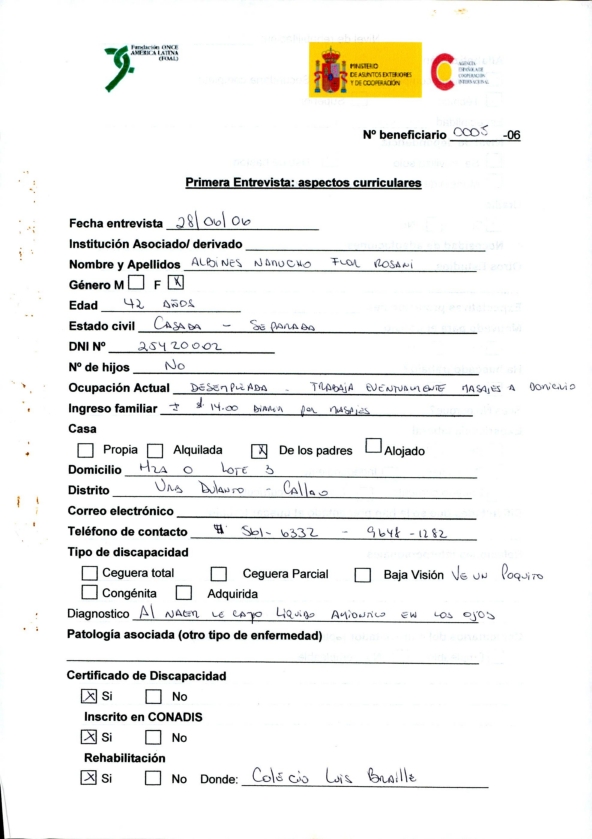 Fundación ONCE
AMÉRICA LATINA
(FOAL)
MINISTERIO
DE ASUNTOS EXTERIORES
Y DE COOPERACIÓN
AGENCIA
ESPAÑOLA DE
COOPERACIÓN
INTERNACIONAL
Nº beneficiario 0005 -06
Primera Entrevista: aspectos curriculares
Fecha entrevista 28/06/06
Institución Asociado/ derivado
Nombre y Apellidos ALBINES ÑAÑUCHO FLOR ROSANI
Género M F X
Edad 42 AÑOS
Estado civil CASADA - SEPARADA
DNI Nº 25420002
Nº de hijos No
Ocupación Actual DESEMPLEADA - TRABAJA EVENTUALMENTE MASAJES A DOMICILIO
Ingreso familiar ± $ 14.00 DIARIA POR MASAJES
Casa
Propia Alquilada X De los padres Alojado
Domicilio MZA O LOTE 3
Distrito URB DULANTO - CALLAO
Correo electrónico
Teléfono de contacto # 561-6332 - 9648-1282
Tipo de discapacidad
Ceguera total Ceguera Parcial Baja Visión VE UN POQUITO
Congénita Adquirida
Diagnostico Al NACER LE CAYO LIQUIDO AMIONTICO EN LOS OJOS
Patología asociada (otro tipo de enfermedad)
Certificado de Discapacidad
X Si No
Inscrito en CONADIS
X Si No
Rehabilitación
X Si No Donde: Colegio Luis Braille